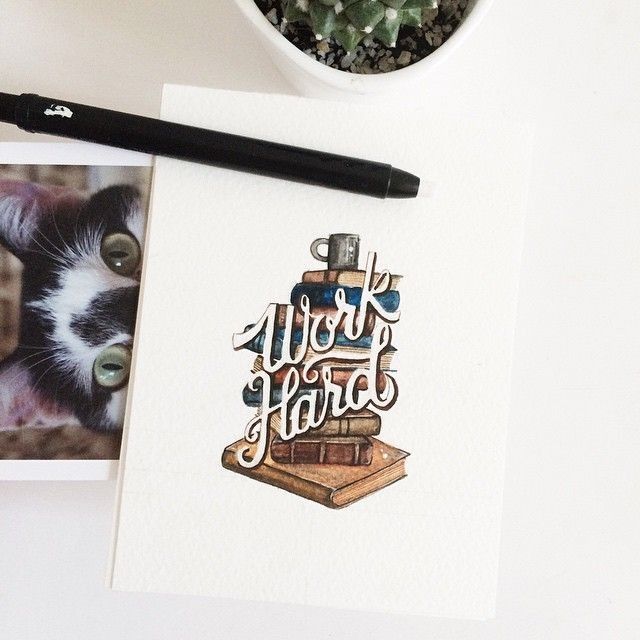 Work
Hard